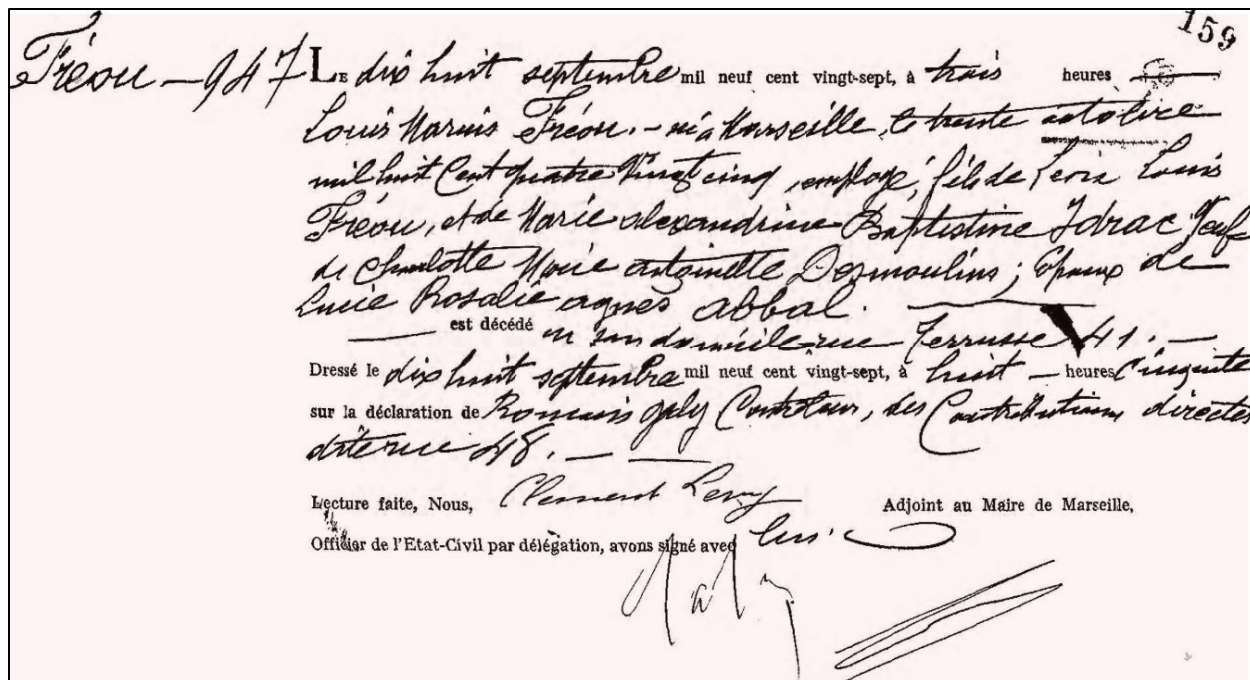 159
Fréou — 947
LE dix huit septembre mil neuf cent vingt-sept, à trois heures —
Louis Marius Fréou. — né à Marseille, le trente octobre
mil huit Cent quatre Vingt cinq, employé, fils de Louis
Fréou, et de Marie alexandrine Baptistine Idrac Veuf
de Charlotte Marie antoinette Desmoulins; Epoux de
Lucie Rosalie agnès abbal. —
— est décédé en son domicile rue Terrusse 41. —
Dressé le dix huit septembre mil neuf cent vingt-sept, à huit — heures Cinquante
sur la déclaration de Romain Galy Controleur, des Contributions directes
dite rue 48. — —
Lecture faite, Nous, Clément Levy Adjoint au Maire de Marseille,
Officier de l'Etat-Civil par délégation, avons signé avec lui.